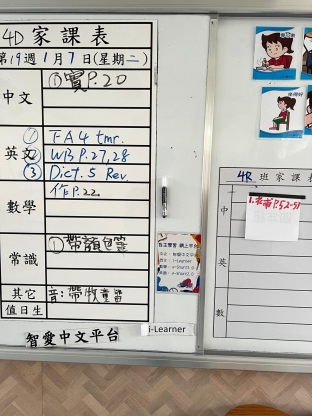 4D 家課表
第19週1月7日(星期二)
中文
① 實P.20
英文
① FA4 tmr.
② WB P.27,28
③ Dict. 5 Rev.
數學
作P.22
常識
其它
音:帶牧童笛
值日生
智愛中文平台
i-Learner
自主學習 網上平台
4R 班家課表
中
英
數